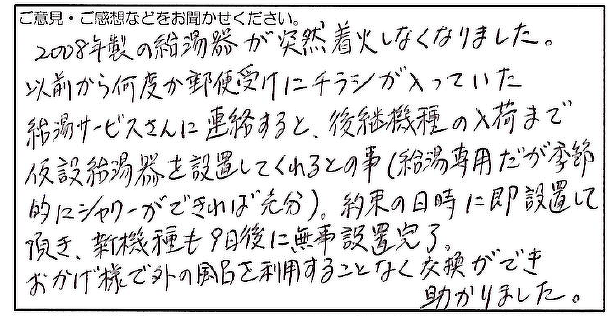 ご意見・ご感想などをお聞かせください。
2008年製の給湯器が突然着火しなくなりました。
以前から何度か郵便受けにチラシが入っていた
給湯サービスさんに連絡すると、後継機種の入荷まで
仮設給湯器を設置してくれるとの事(給湯専用だが季節
的にシャワーができれば充分)。約束の日時に即設置して
頂き、新機種も9日後に無事設置完了。
おかげ様で外の風呂を利用することなく交換ができ
助かりました。